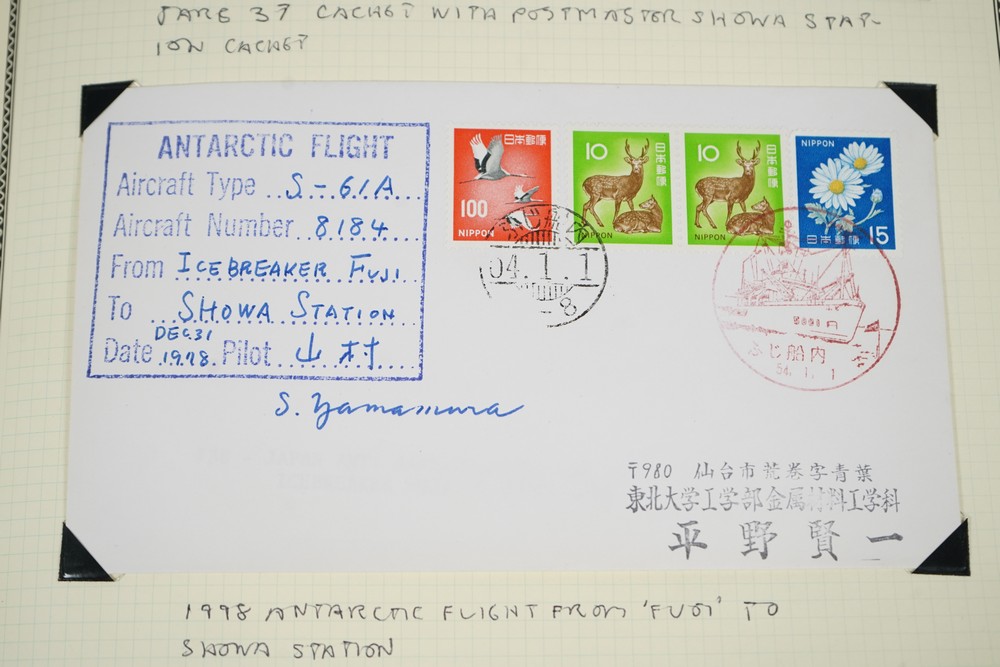 JARE 37 CACHET WITH POSTMASTER SHOWA STAT-
ION CACHET
ANTARCTIC FLIGHT
Aircraft Type S-61A
Aircraft Number 8184
From ICEBREAKER FUJI
To SHOWA STATION
Date DEC.31 1978 Pilot 山村
S. Yamamura
日本郵便
100
NIPPON
10
日本郵便
NIPPON
10
日本郵便
NIPPON
NIPPON
日本郵便 15
54.1.1
-8
5001
ふじ船内
54.1.1
〒980 仙台市荒巻字青葉
東北大学工学部金属材料工学科
平野賢一
1998 ANTARCTIC FLIGHT FROM 'FUJI' TO
SHOWA STATION